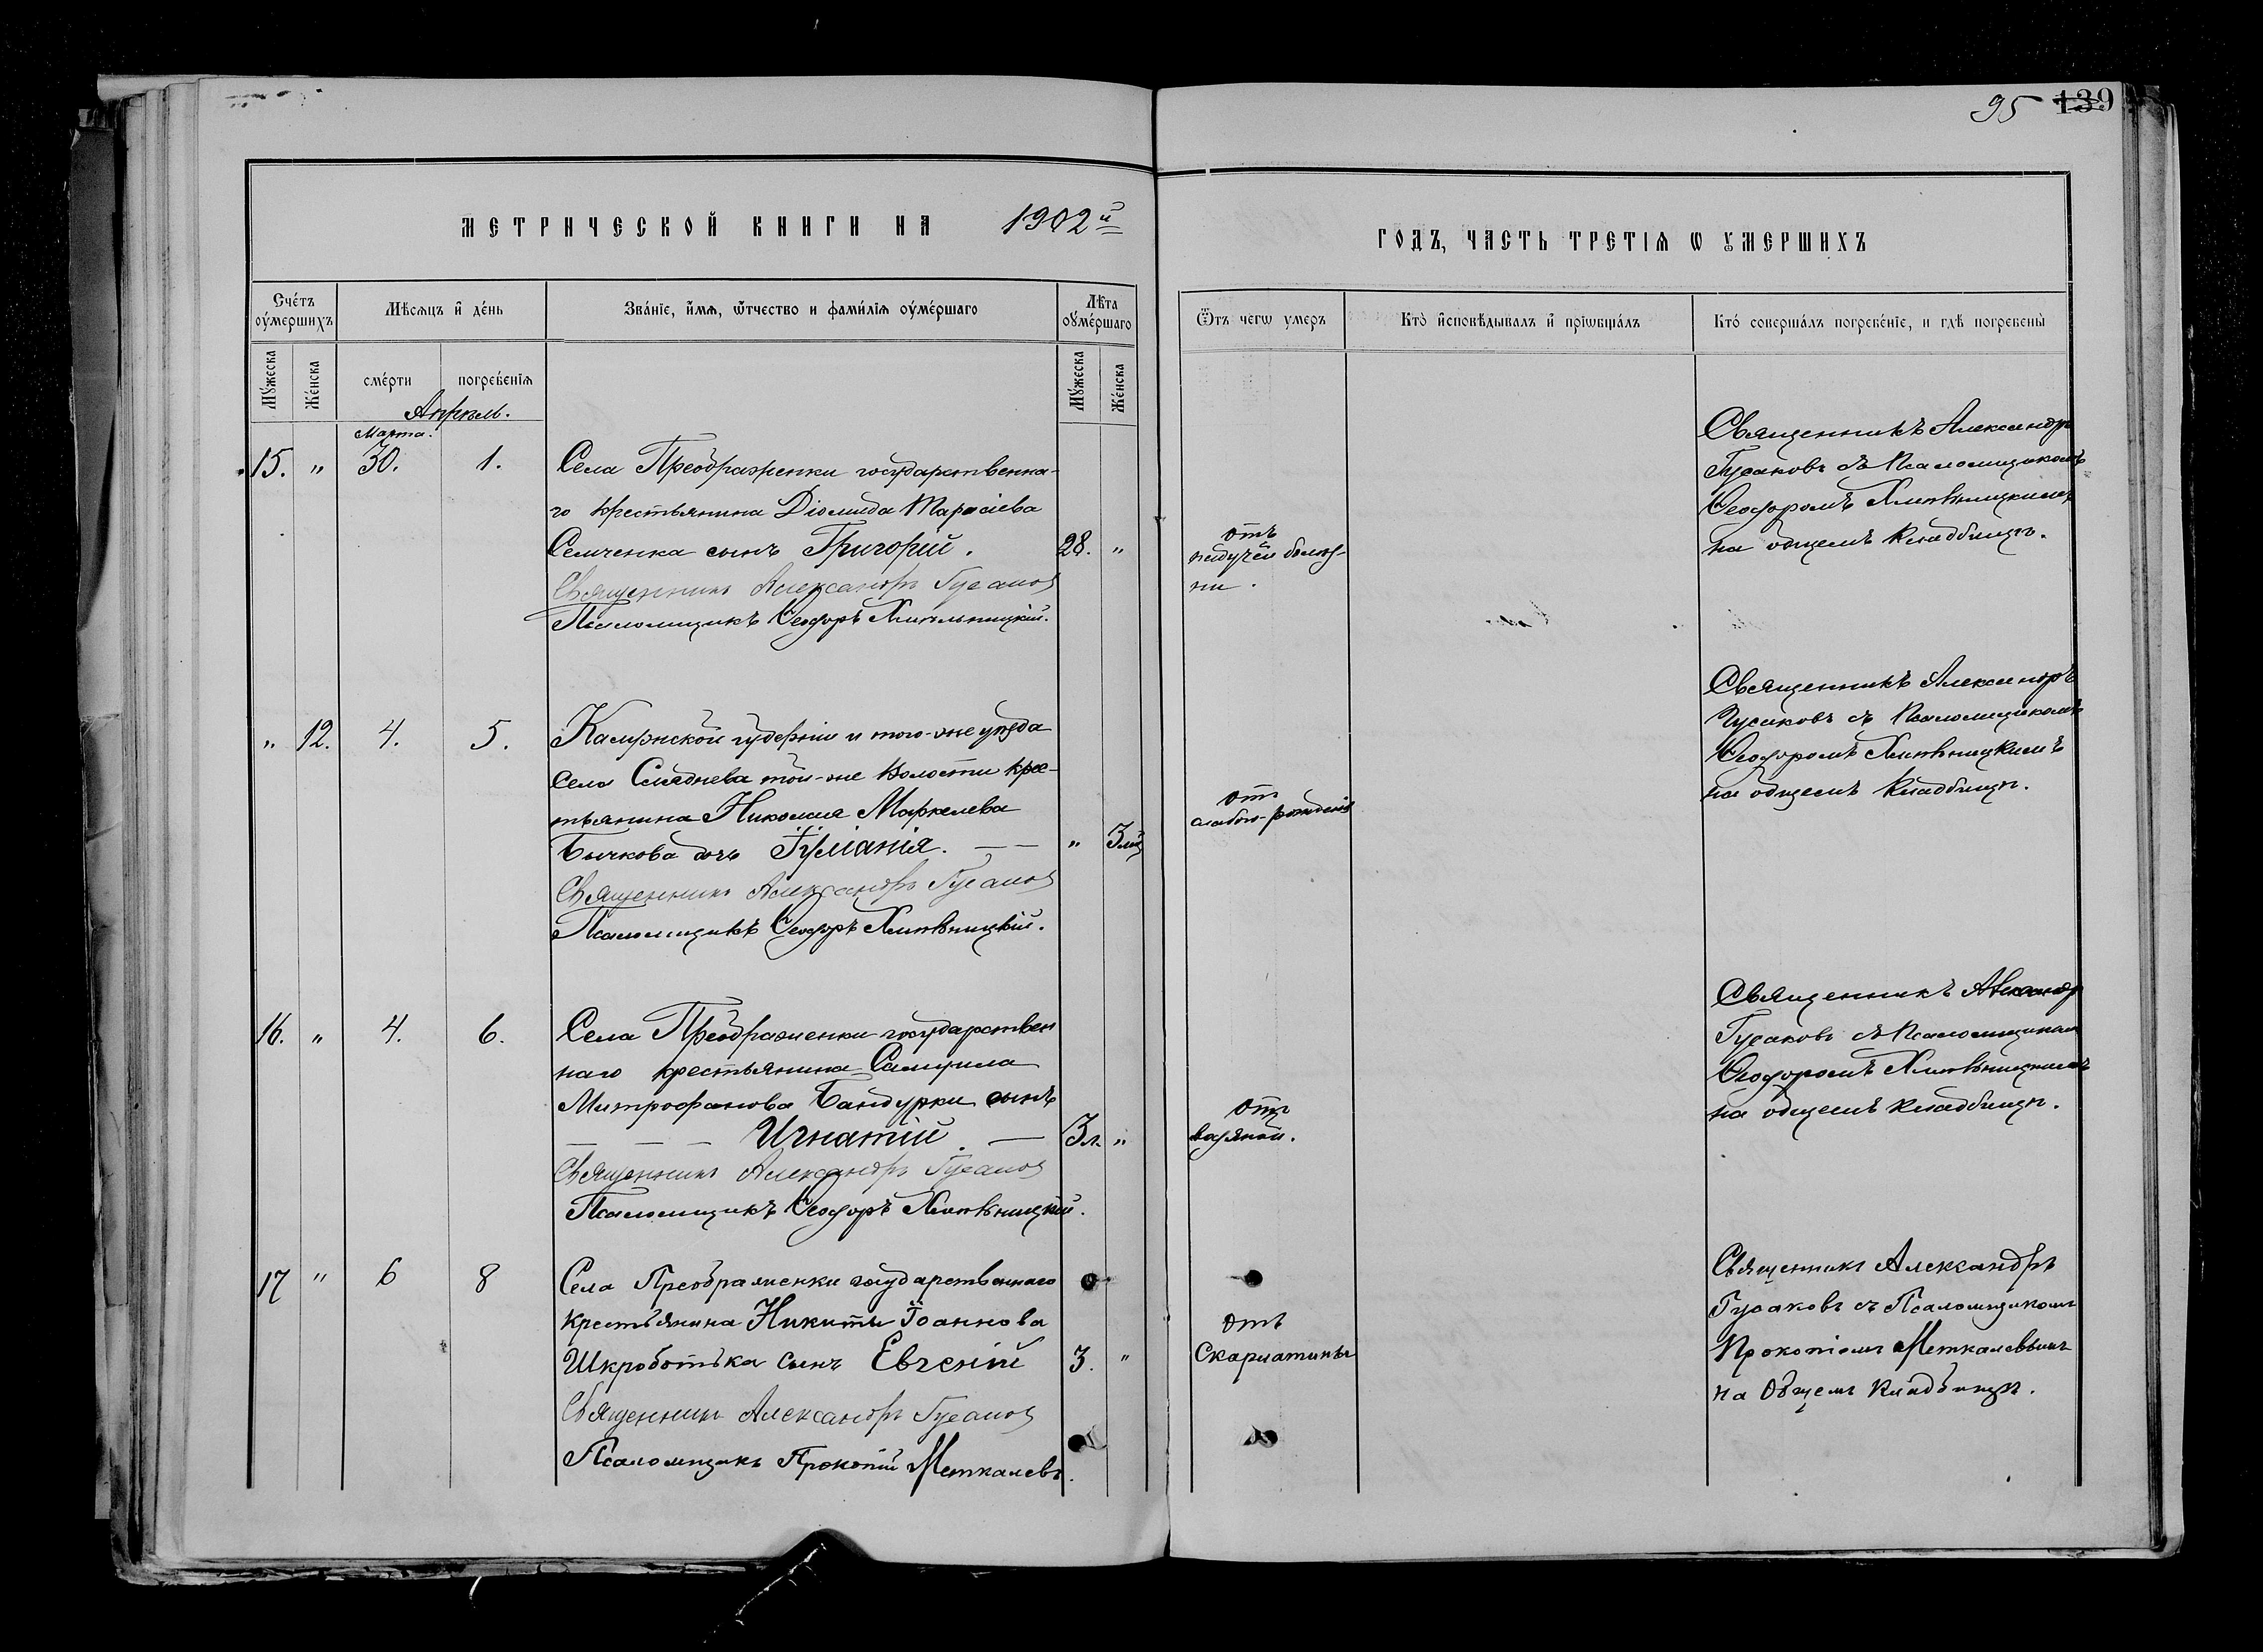 95 139
МЕТРИЧЕСКОЙ КНИГИ НА 1902й
ГОДЪ, ЧАСТЬ ТРЕТІѦ Ѡ ОУМЕРШИХЪ
Сче́тъ оу҆ме́ршихъ
Мѣ́сѧцъ и҆ де́нь
Зва́нїе, и҆́мѧ, ѻ҆́тчество и фами́лїѧ оу҆ме́ршаго
Лѣ̑та оу҆ме́ршаго
Ѿ чегѡ̀ умеръ
Кто̀ и҆сповѣ́дывалъ и҆ прїѡбща́лъ
Кто́ соверша́лъ погребе́нїе, и гдѣ̀ погребены̀
Мꙋ́жеска
Же́нска
сме́рти
погребе́нїѧ
Мꙋ́жеска
Же́нска
Апрѣль.
Марта.
15. " 30. 1.
Села Преображенки государственна-
го крестьянина Діомида Тарасіева
Семченка сынъ Григорій. 28. "
Священникъ Александръ Гусаковъ
Псаломщикъ Ѳеодоръ Хмѣльницкій.
отъ
падучей болѣз-
ни.
Священникъ Александръ
Гусаковъ съ Псаломщикомъ
Ѳеодоромъ Хмѣльницкимъ
на общемъ кладбищѣ.
" 12. 4. 5.
губерніи и того-же уѣзда
Села той-же волости крес-
тьянина Николая Маркелева
Бычкова дочь " 3 мц
Священникъ Александръ Гусаковъ
Псаломщикъ Ѳеодоръ Хмѣльницкій.
отъ
слабо-рожденія
Священникъ Александръ
Гусаковъ съ Псаломщикомъ
Ѳеодоромъ Хмѣльницкимъ
на общемъ кладбищѣ.
16. " 4. 6.
Села Преображенки государствен
наго крестьянина Самуила
Митрофанова Бандурки сынъ
— — — Игнатій. — 3 л. "
Священникъ Александръ Гусаковъ
Псаломщикъ Ѳеодоръ Хмѣльницкій.
отъ
водяной.
Священникъ Александръ
Гусаковъ съ Псаломщикомъ
Ѳеодоромъ Хмѣльницкимъ
на общемъ кладбищѣ.
17 " 6 8
Села Преображенки государственнаго
крестьянина Никиты Іоаннова
Шкроботька сынъ Евгеній 3. "
Священникъ Александръ Гусаковъ
Псаломщикъ Прокопій Меткалевъ.
отъ
Скарлатины
Священникъ Александръ
Гусаковъ съ Псаломщикомъ
Прокопіемъ Меткалевымъ
на Общемъ кладбищѣ.